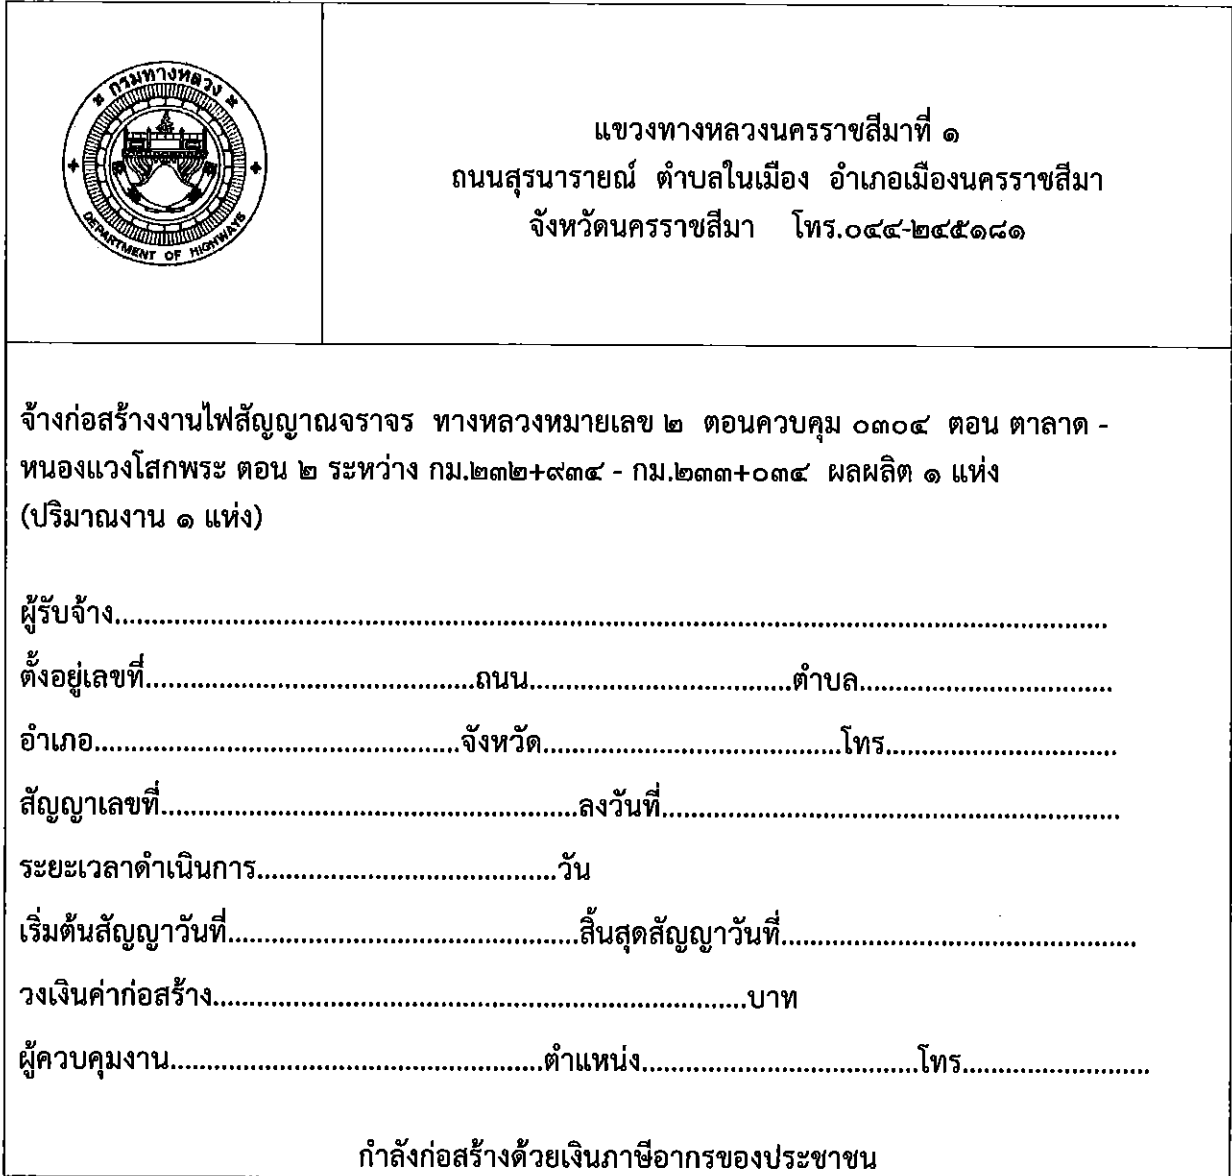 กรมทางหลวง
DEPARTMENT OF HIGHWAYS
แขวงทางหลวงนครราชสีมาที่ ๑
ถนนสุรนารายณ์ ตำบลในเมือง อำเภอเมืองนครราชสีมา
จังหวัดนครราชสีมา โทร.๐๔๔-๒๔๕๑๘๑
จ้างก่อสร้างงานไฟสัญญาณจราจร ทางหลวงหมายเลข ๒ ตอนควบคุม ๐๓๐๔ ตอน ตาลาด -
หนองแวงโสกพระ ตอน ๒ ระหว่าง กม.๒๓๒+๙๓๔ - กม.๒๓๓+๐๓๔ ผลผลิต ๑ แห่ง
(ปริมาณงาน ๑ แห่ง)
ผู้รับจ้าง........................................
ตั้งอยู่เลขที่....................ถนน....................ตำบล....................
อำเภอ....................จังหวัด....................โทร....................
สัญญาเลขที่....................ลงวันที่....................
ระยะเวลาดำเนินการ....................วัน
เริ่มต้นสัญญาวันที่....................สิ้นสุดสัญญาวันที่....................
วงเงินค่าก่อสร้าง....................บาท
ผู้ควบคุมงาน....................ตำแหน่ง....................โทร....................
กำลังก่อสร้างด้วยเงินภาษีอากรของประชาชน